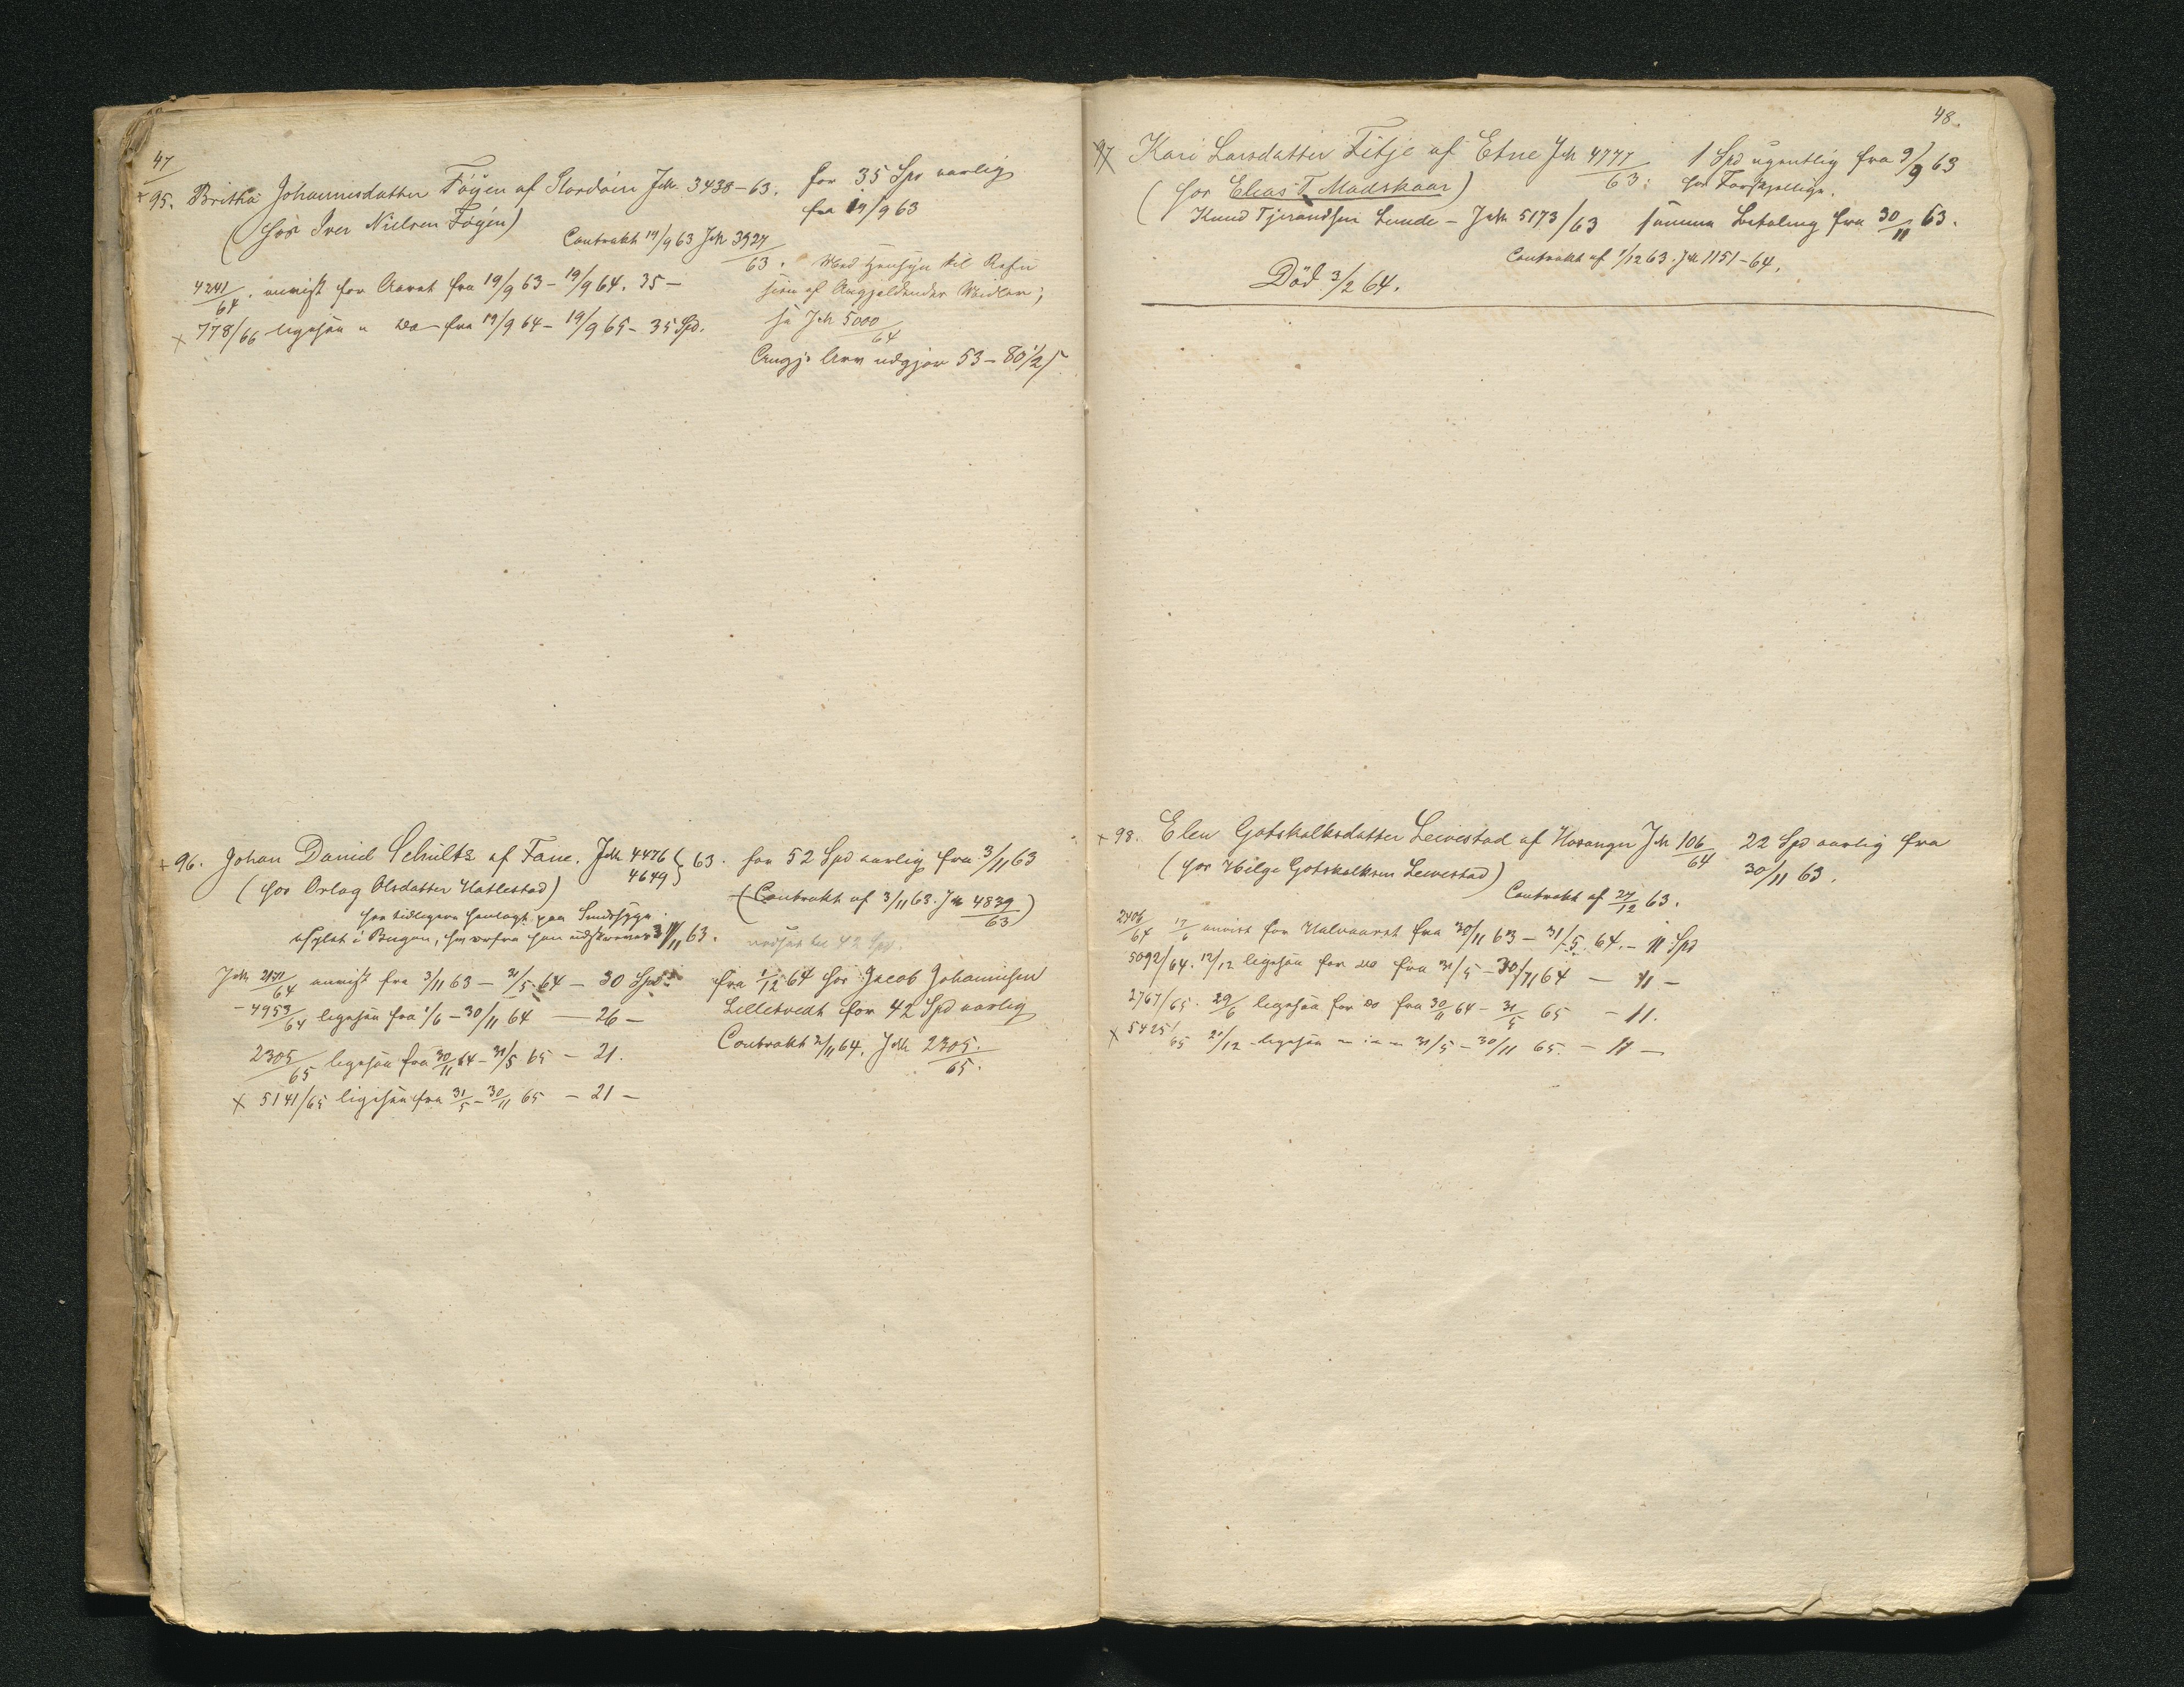 47
× 95. Britha Johannisdatter Føÿen af Stordøen Jk. 3438-63. for 35 Spd aarlig
(hos Iver Nielsen Føyen) fra 19/9 63
Contrakt 19/9 63 Jk 3927/63. Med Hensyn til Refu
4241/64. anvist for Aaret fra 19/9 63 - 19/9 64. 35 - sion af Angjeldendes Midler,
× 778/66 ligesaa " do - fra 19/9 64 - 19/9 65 - 35 Spd. se Jk 5000/64
Angj. Arv udgjør 53 - 80 1/2 s
+ 96. Johan Daniel Schultz af Fane. Jk 4476 4649 } 63. for 52 Spd aarlig fra 3/11 63
(hos Orlag Olsdatter Hatlestad) (Contrakt af 3/11 63. Jk 4839/63)
har tidligere henlagt paa Sindssyge
asylet i Bergen, hvorfra han udskreves 3/11 63. nedsat til 42 Spd.
Jk 2131/64 anvist fra 3/11 63 - 31/5 64 - 30 Spd. fra 1/12 64 hos Jacob Johannesen
- 4953/64 ligesaa fra 1/6 - 30/11 64 - 26 - Lilletvedt for 42 Spd aarlig
2305/65 ligesaa fra 30/11 64 - 31/5 65 - 21. Contrakt 2/11 64. Jk 2305/65.
× 5141/65 ligesaa fra 31/5 - 30/11 65 - 21 -
48.
97 Kari Larsdatter Fitje af Etne Jk 4777/63. 1 Spd ugentlig fra 9/9 63
(hos Elias T. Madskaar) hos Forskjellige.
Knud Tjerandsen Lunde - Jk 5173/63 samme Betaling fra 30/11 63.
Contrakt af 1/12 63. Jk 1151-64.
Død 3/2 64.
+ 98. Elen Gotskalksdatter Leivestad af Hosanger Jk 106/64 22 Spd aarlig fra
(hos Helge Gotskalksen Leivestad) 30/11 63.
Contrakt af 27/12 63.
2406/64 17/6 anvist for Halvaaret fra 30/11 63 - 31/5 64. - 11 Spd
5092/64. 12/12 ligesaa for do fra 31/5 - 30/11 64 - 11 -
2767/65. 29/6 ligesaa for do fra 30/11 64 - 31/5 65 - 11.
× 5425/65 21/12 - ligesaa " " " 31/5 - 30/11 65. - 11 -